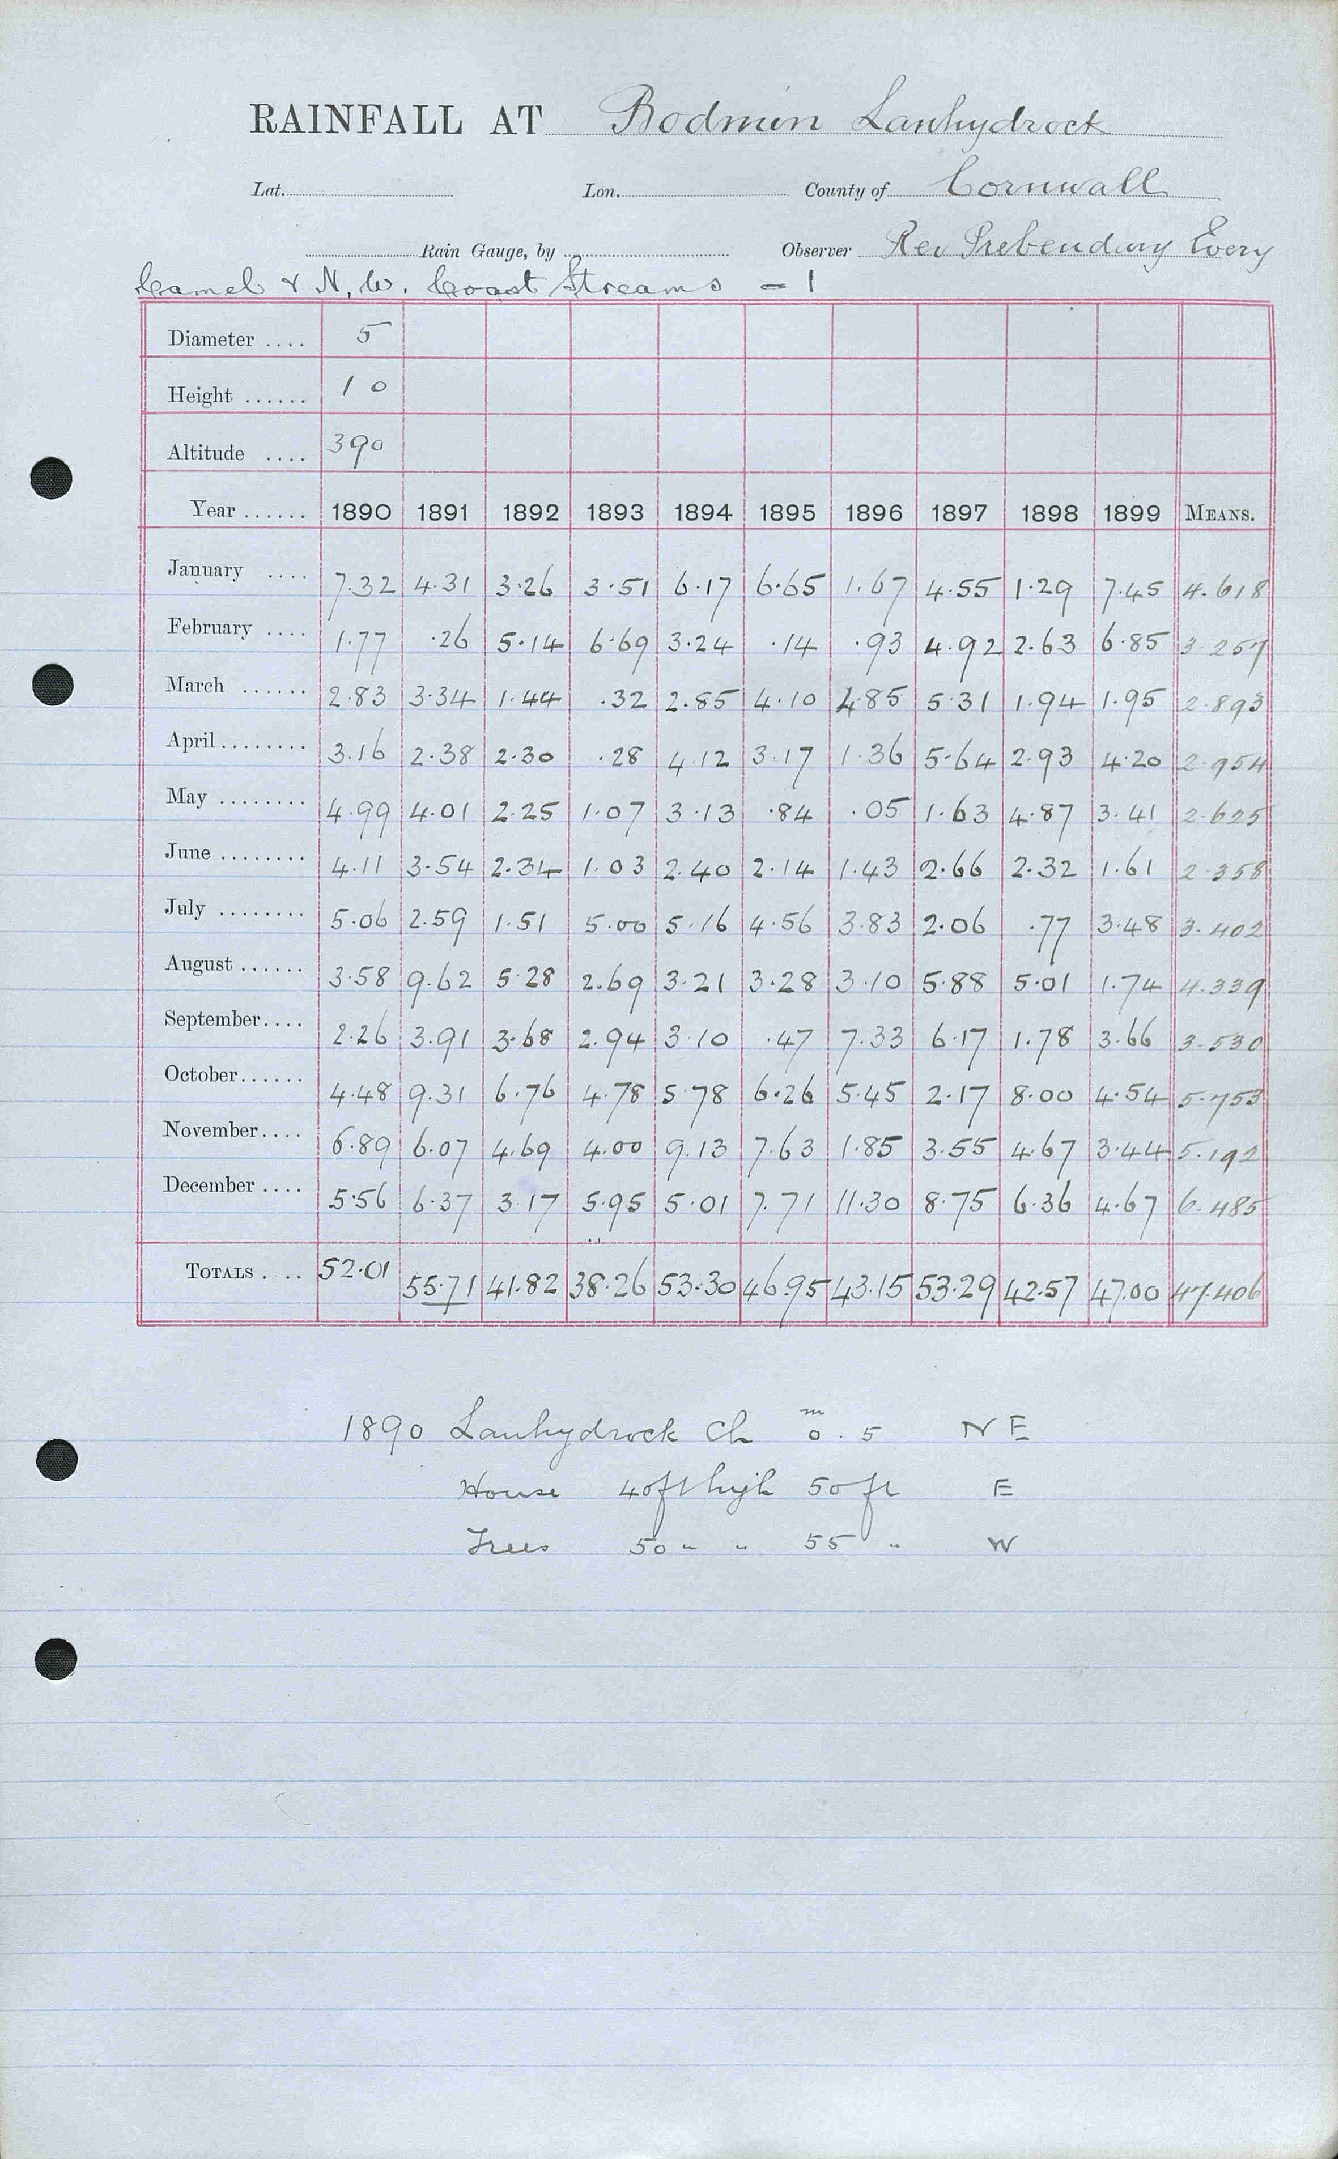 RAINFALL AT Bodmin Lanhydrock
Lat. Lon. County of Cornwall
Rain Gauge, by Observer Rev Prebendary Every
Camel & N. W. Coast Streams - 1
Diameter .... 5
Height ...... 1 0
Altitude .... 390
Year ...... 1890 1891 1892 1893 1894 1895 1896 1897 1898 1899 MEANS.
January .... 7.32 4.31 3.26 3.51 6.17 6.65 1.67 4.55 1.29 7.45 4.618
February .... 1.77 .26 5.14 6.69 3.24 .14 .93 4.92 2.63 6.85 3.257
March ...... 2.83 3.34 1.44 .32 2.85 4.10 4.85 5.31 1.94 1.95 2.893
April ........ 3.16 2.38 2.30 .28 4.12 3.17 1.36 5.64 2.93 4.20 2.954
May ........ 4.99 4.01 2.25 1.07 3.13 .84 .05 1.63 4.87 3.41 2.625
June ........ 4.11 3.54 2.34 1.03 2.40 2.14 1.43 2.66 2.32 1.61 2.358
July ........ 5.06 2.59 1.51 5.00 5.16 4.56 3.83 2.06 .77 3.48 3.402
August ...... 3.58 9.62 5.28 2.69 3.21 3.28 3.10 5.88 5.01 1.74 4.339
September.... 2.26 3.91 3.68 2.94 3.10 .47 7.33 6.17 1.78 3.66 3.530
October...... 4.48 9.31 6.76 4.78 5.78 6.26 5.45 2.17 8.00 4.54 5.753
November.... 6.89 6.07 4.69 4.00 9.13 7.63 1.85 3.55 4.67 3.44 5.192
December .... 5.56 6.37 3.17 5.95 5.01 7.71 11.30 8.75 6.36 4.67 6.485
TOTALS .... 52.01 55.71 41.82 38.26 53.30 46.95 43.15 53.29 42.57 47.00 47.406
1890 Lanhydrock Ch m 0.5 N E
House 40ft high 50 ft E
Trees 50 " " 55 " W